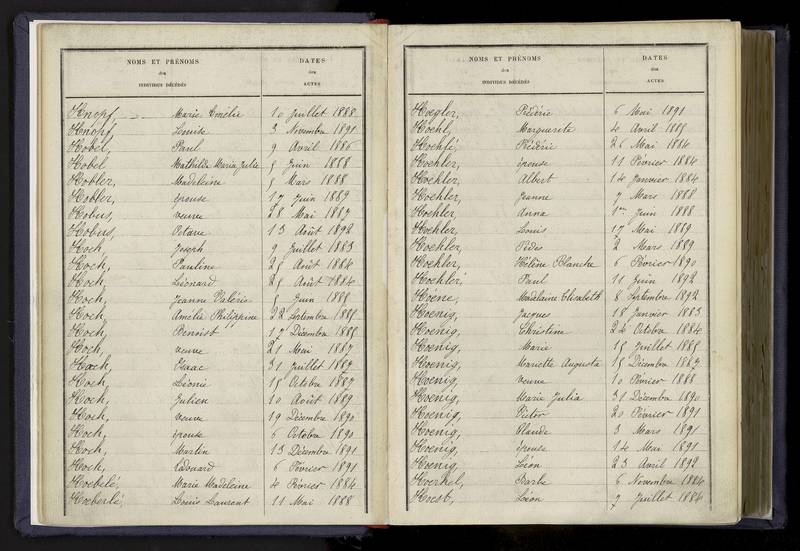 NOMS ET PRÉNOMS
des
INDIVIDUS DÉCÉDÉS
DATES
des
ACTES
Knopf, Marie Amélie 10 Juillet 1888
Knopf, Louise 3 Novembre 1891
Hobel, Paul 9 Avril 1886
Hobel Mathilde Maria Julie 5 Juin 1888
Hobler, Madeleine 5 Mars 1888
Hobler, épouse 17 Juin 1889
Hobus, veuve 28 Mai 1887
Hobus, Octave 13 Août 1892
Hoch, Joseph 9 Juillet 1883
Hoch, Pauline 25 Août 1884
Hoch, Léonard 25 Août 1884
Hoch, Jeanne Valérie 5 Juin 1885
Hoch, Amélie Philippine 22 Septembre 1885
Hoch, Benoist 17 Décembre 1885
Hoch, veuve 21 Mai 1887
Hoch, Isaac 31 Juillet 1887
Hoch, Léonie 15 Octobre 1887
Hoch, Julien 10 Août 1889
Hoch, veuve 19 Décembre 1890
Hoch, épouse 6 Octobre 1890
Hoch, Martin 13 Décembre 1891
Hoch, Edouard 6 Février 1891
Hoebelé, Marie Madeleine 4 Février 1884
Hoeberlé, Louis Laurent 11 Mai 1888
NOMS ET PRÉNOMS
des
INDIVIDUS DÉCÉDÉS
DATES
des
ACTES
Hoegler, Frédéric 6 Mai 1891
Hoehl, Marguerite 4 Avril 1885
Hoehlé, Frédéric 26 Mai 1884
Hoehler, épouse 11 Février 1884
Hoehler, Albert 14 Janvier 1884
Hoehler, Jeanne 7 Mars 1888
Hoehler, Anna 1er Juin 1888
Hoehler, Louis 17 Mai 1889
Hoehler, 2 Mars 1889
Hoehler, Hélène Blanche 6 Février 1890
Hoehler, Paul 11 Juin 1892
Hoene, Madelaine Elisabeth 8 Septembre 1892
Hoenig, Jacques 18 Janvier 1883
Hoenig, Christine 24 Octobre 1884
Hoenig, Marie 15 Juillet 1885
Hoenig, Mariette Augusta 15 Décembre 1887
Hoenig, veuve 10 Février 1888
Hoenig, Marie Julia 31 Décembre 1890
Hoenig, Victor 20 Février 1891
Hoenig, Claude 3 Mars 1891
Hoenig, épouse 14 Mai 1891
Hoenig, Léon 23 Avril 1892
Hoerhel, Barbe 6 Novembre 1884
Hoest, Léon 7 Juillet 1884